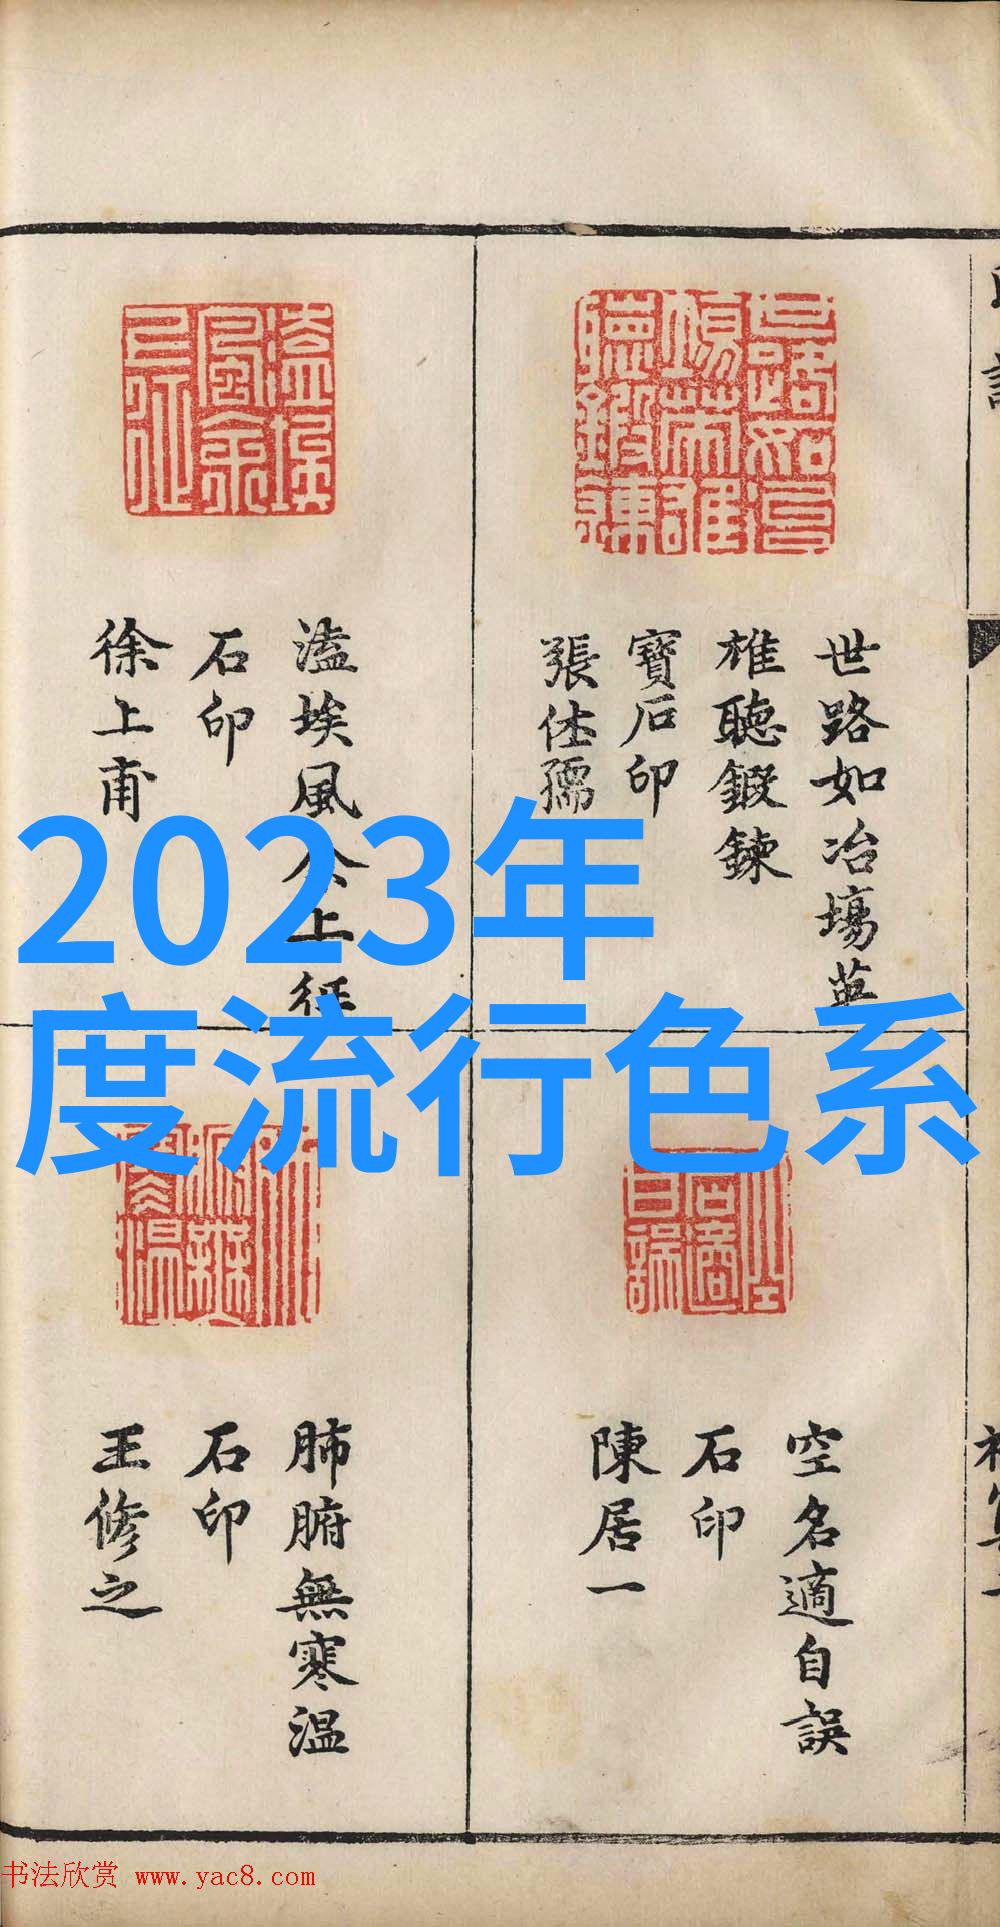 2023年
度流行色系
世路如冶場英
雄聽鍛鍊
寶石印
張仕孺
溘埃風余上征
石印
徐上甫
空名適自誤
石印
陳居一
肺腑無寒溫
石印
王修之
书法欣赏 www.yac8.com